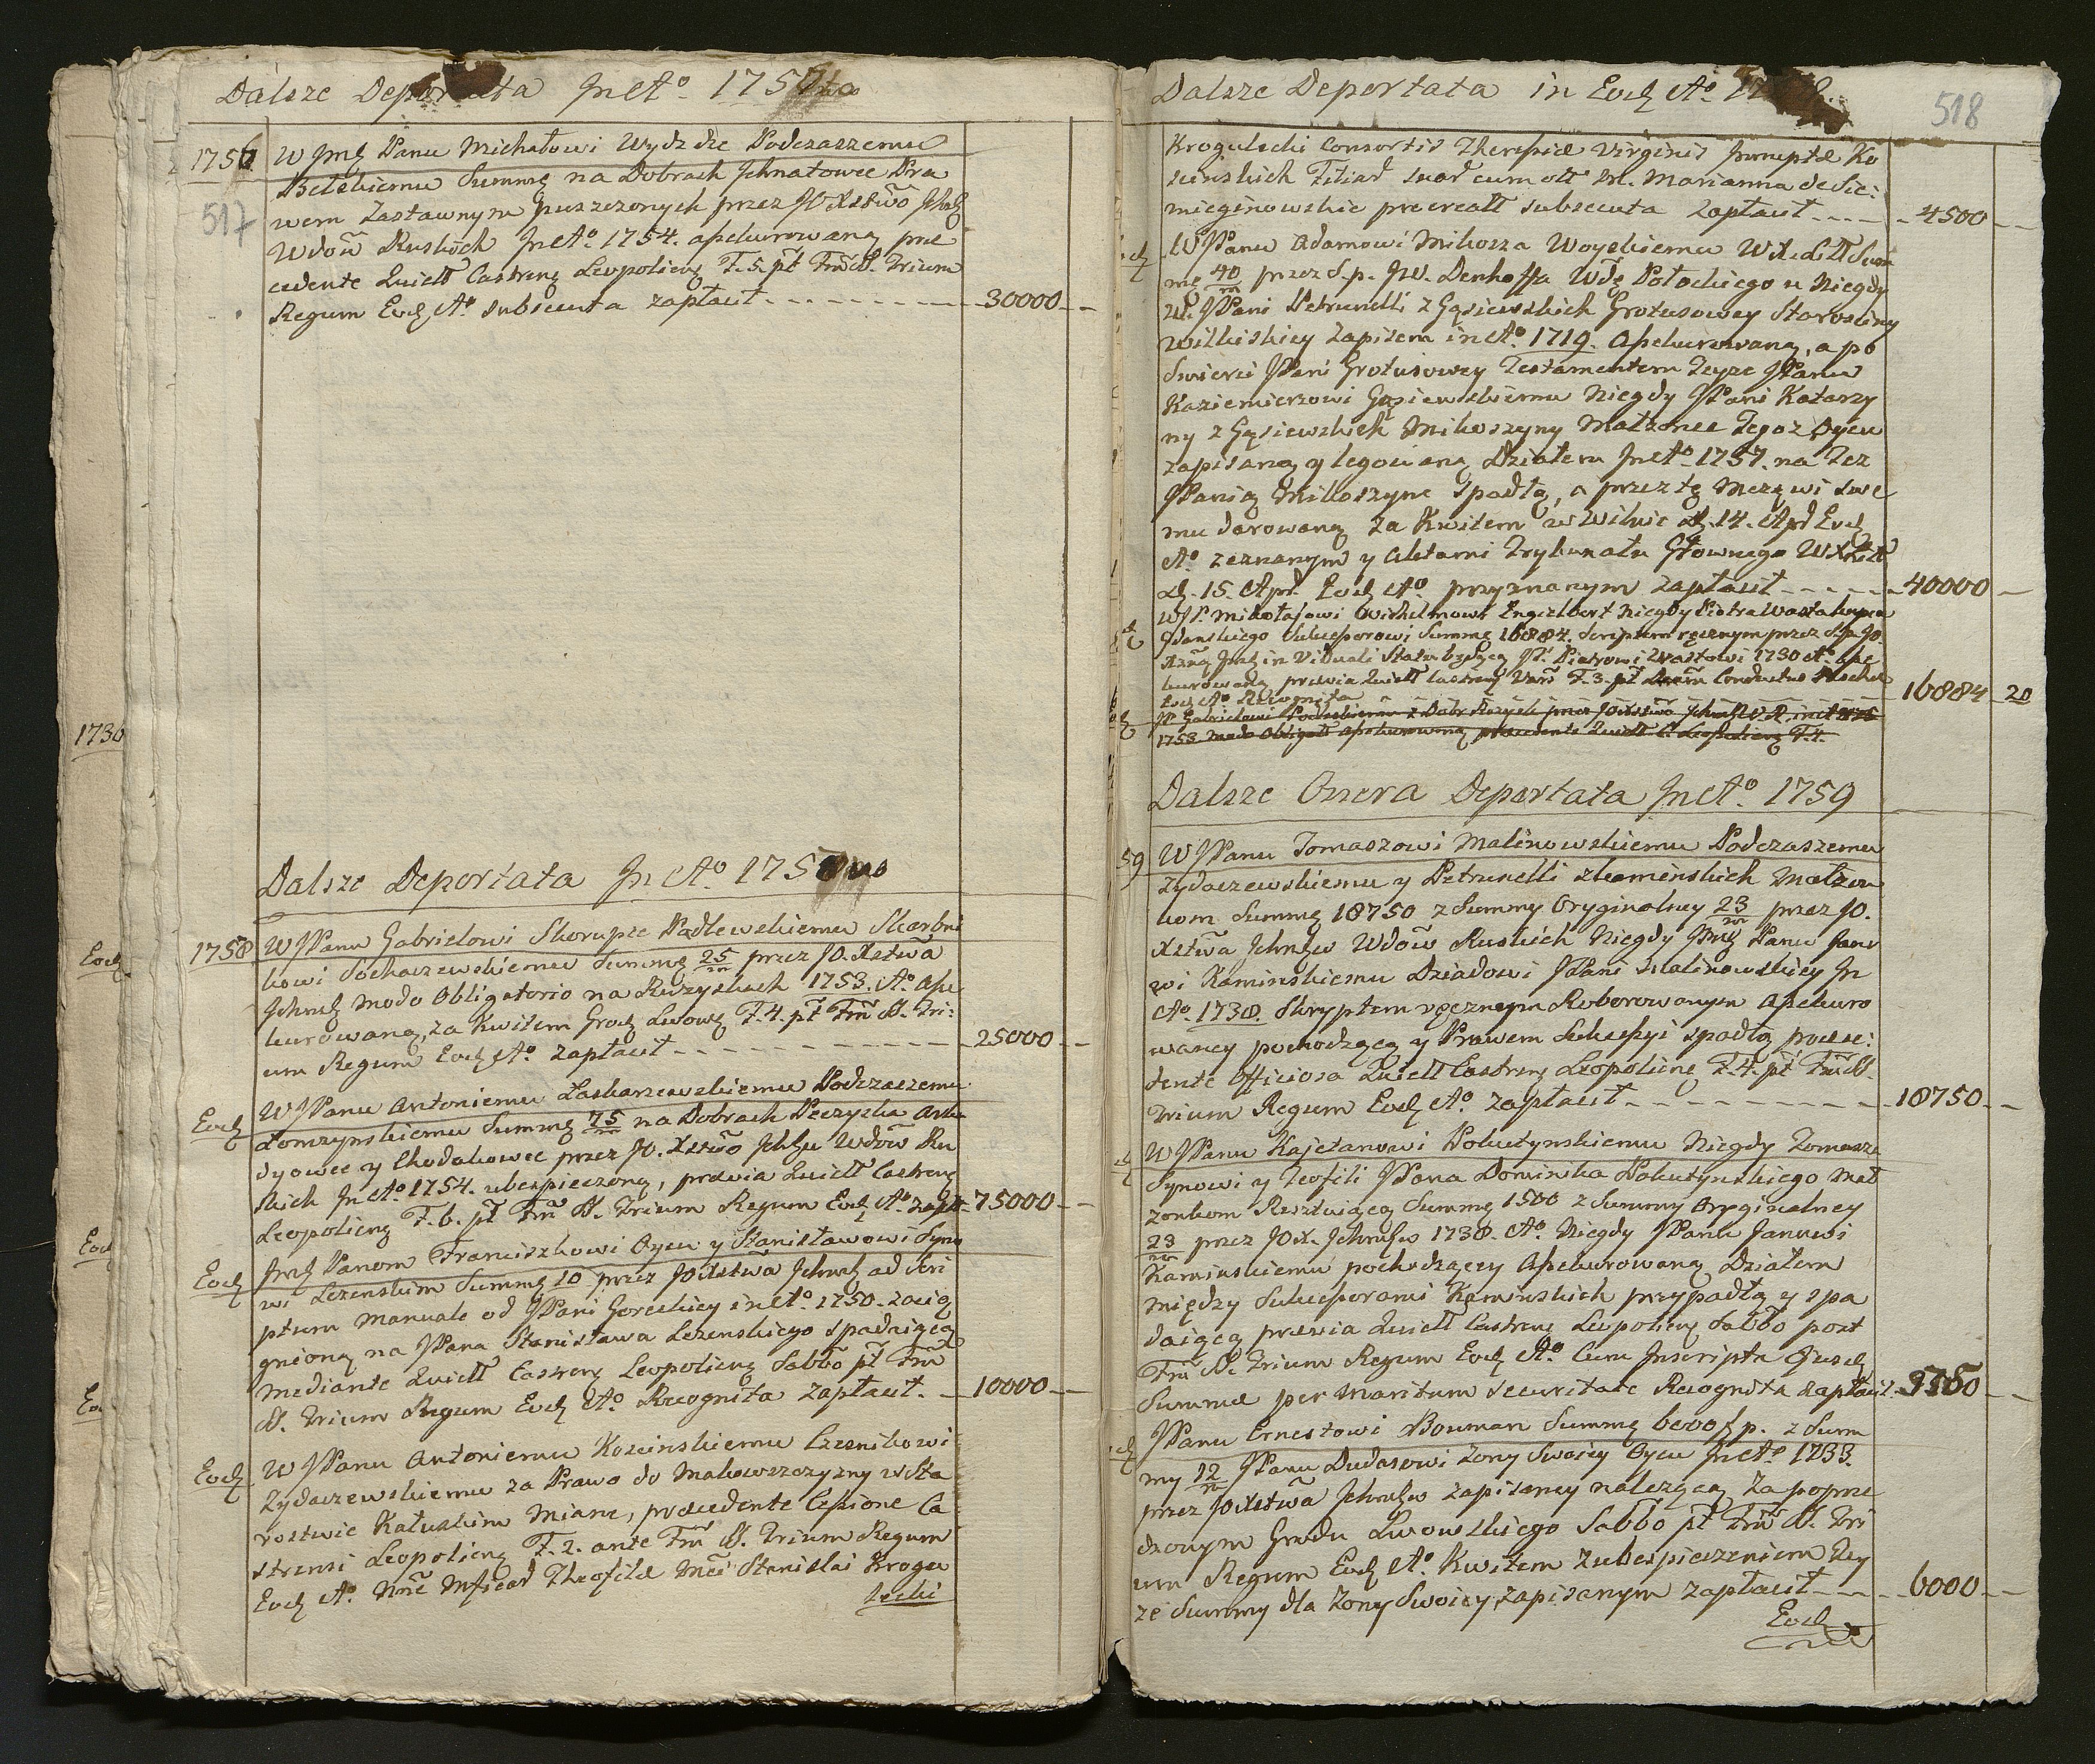 Dalsze Deportata In Ao. 175
1756. W Jmć Panu Michałowi Wydzdze Podczaszemu
Bełskiemu Summę na Dobrach Jchnatowce Pra
517
wem Zastawnym puszczonych przez JOXstwo
Wdow Ruskich In Ao. 1754. apekurowaną prae
cedente Quiett Castreng Leopolieng F. 5. pt Fm SS. Trium
Regum Eod Ao subsecuta zapłacił 30000
1730
Dalsze Deportata In Ao. 175
1758 WJPanu Gabrielowi Skorupce Padlewskiemu Skarbni
kowi Sochaczewskiemu Summę 25/m przez JO. Xstwa
Jchmć modo Obligatorio na Ruzyskach 1753. Ao. ape
kurowaną, za Kwitem Grod Lwow F. 4. pt Fm SS. Tri:
um Regum Eod Ao. Zapłacił 25000
Eod WJPanu Antoniemu Laskarzewskiemu Podczaszemu
Łomżynskiemu Summę 75/m na Dobrach Peczychu Arła
dyowce y Chodakowce przez JO. Xstwo Wdow Ru
skich In Ao. 1754. ubespieczoną, praevia Quiett Castreng
Leopolieng F. 6. pt Fm SS. Trium Regum Eod Ao. zapł 75000
Eod Jmć Panom Franciszkowi Oycu y Stanisławowi Syno
wi Lezenskim Summę 10/m przez JOXstwa Jchmć ad Scri
ptum manuale od JPani Gorskiey in Ao. 1750. zacią
gnioną na JPana Stanisława Lezenskiego spadaiącą
mediante Quiett Castreng Leopolieng Sabbo pt Fm
SS. Trium Regum Eod Ao. Recognita zapłacił 10000
Eod WJPanu Antoniemu Koscinskiemu Czesnikowi
Zydaczewskiemu za Prawo do Makowszczyzny w Sta
rostwie Kałuskim miane, praecedente Cessione Ca
strensi Leopolieng F. 2. ante Fm SS. Trium Regum
Eod Ao. Theofile Stanislai Krogu
lecki
Eod
Eod
Dalsze Deportata in Eod Ao.
518
Krogulecki Consortis Theresiae Virginis Innuptae Ko
scinskich Filiar suar cum olt M. Marianna de Sie:
mieginowskie procreatt subsecuta zapłacił 4500
WJPanu Adamowi Mikosza Woyskiemu WXLitt Sum
mę 40/m przez S.p. JW. Denhoffa Wdę Połockiego u Niegdy
W. JPani Petrunelli z Gąsiewskich Grotusowey Starosciny
Wilkiskiey Zapisem in Ao. 1719. Apekurowaną, a po
Smierci JPani Grotusowey Testamentem Teyze JPanu
Kazimierzowi Gąsiewskiemu Niegdy JPani Katarzy
ny z Gąsiewskich Mikoszyny Małzonce Tegoz Oycu
zapisaną y legowaną Działem In Ao. 1757. na Tęz
JPanią Mikoszynę Spadłą, a przez tę Męzowi swe
mu darowaną za Kwitem w Wilnie d. 14. Apr Eod
Ao. zeznanym y Aktami Trybunału Głownego WXLitt
d. 15. Apr. Eod Ao. przyznanym zapłacił 40000
WJP. Mikołajowi Wilhelmowi Engielbert Niegdy Piotra Wasta kupca
Gdanskiego Sukcessorowi Summę 16884. Scriptem ręcznym przez S.p. JO.
Xzną Jmć in Viduali Statu będącą JP. Piotrowi Wastowi 1730 Ao. ape
kurowaną praevia Quiett Castreng F. 3. pt Conductus Pascha
Eod Ao Recognita 16884 20
JP. Gabrielowi Padleskiemu z Dobr Ruzysk przez JOXstwo
1753. modo Obligatt Apekurowaną praecedente Quiett C. Leopolieng F. 4.
Dalsze Onera Deportata In Ao. 1759
59 WJPanu Tomaszowi Malinowskiemu Podczaszemu
Zydaczewskiemu y Petrunelli z Kaminskich Małzon
kom Summę 18750 z Summy Oryginalney 23/m przez JO.
Xstwa Wdow Ruskich Niegdy Jmć Panu Jano
wi Kaminskiemu Dziadowi JPani Malinowskiey In
Ao. 1738. Skryptem ręcznym Roborowanym Apekuro
waney pochodzącą y Prawem Sukcessyi spadłą praece:
dente Officiosa Quiett Castreng Leopolieng F. 4. pt Fm SS.
Trium Regum Eod Ao. zapłacił 18750
WJPanu Kajetanowi Pokutynskiemu Niegdy Tomasza
Synowi y Teofili JPana Dominika Pokutynskiego Mał
zonkom Resztuiącą Summę 1500 z Summy Oryginalney
23/m przez JOX. 1738. Ao. Niegdy JPanu Janowi
Kaminskiemu pochodzącey Apekurowaną Działem
między Sukcessorami Kaminskich przypadłą y spa
daiącą praevia Quiett Castreng Leopolieng Sabbo post
Fm SS. Trium Regum Eod Ao. Cum Inscripta Ejusd
Summae per Maritum securitate Recognita zapłacił
JPanu Ernestowi Bouman Summę 6000 f p. z Sum
my 12/m JPanu Dudasowi Zony Swoiey Oycu In Ao. 1733.
przez JOXstwa zapisaney nalezącą za poprze
dzonym Grodu Lwowskiego Sabbo pt Fm SS. Tri
um Regum Eod Ao. Kwitem z ubespieczeniem Tey
ze Summy dla Zony Swoiey zapisanym zapłacił 6000
Eod